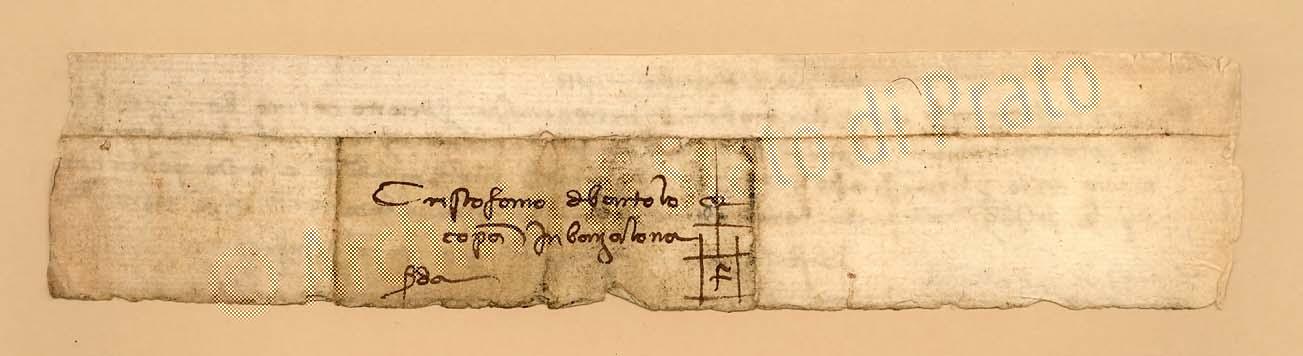 Cristofano dbartolo e
copa in barzalona
prda
© Archivio di Stato di Prato